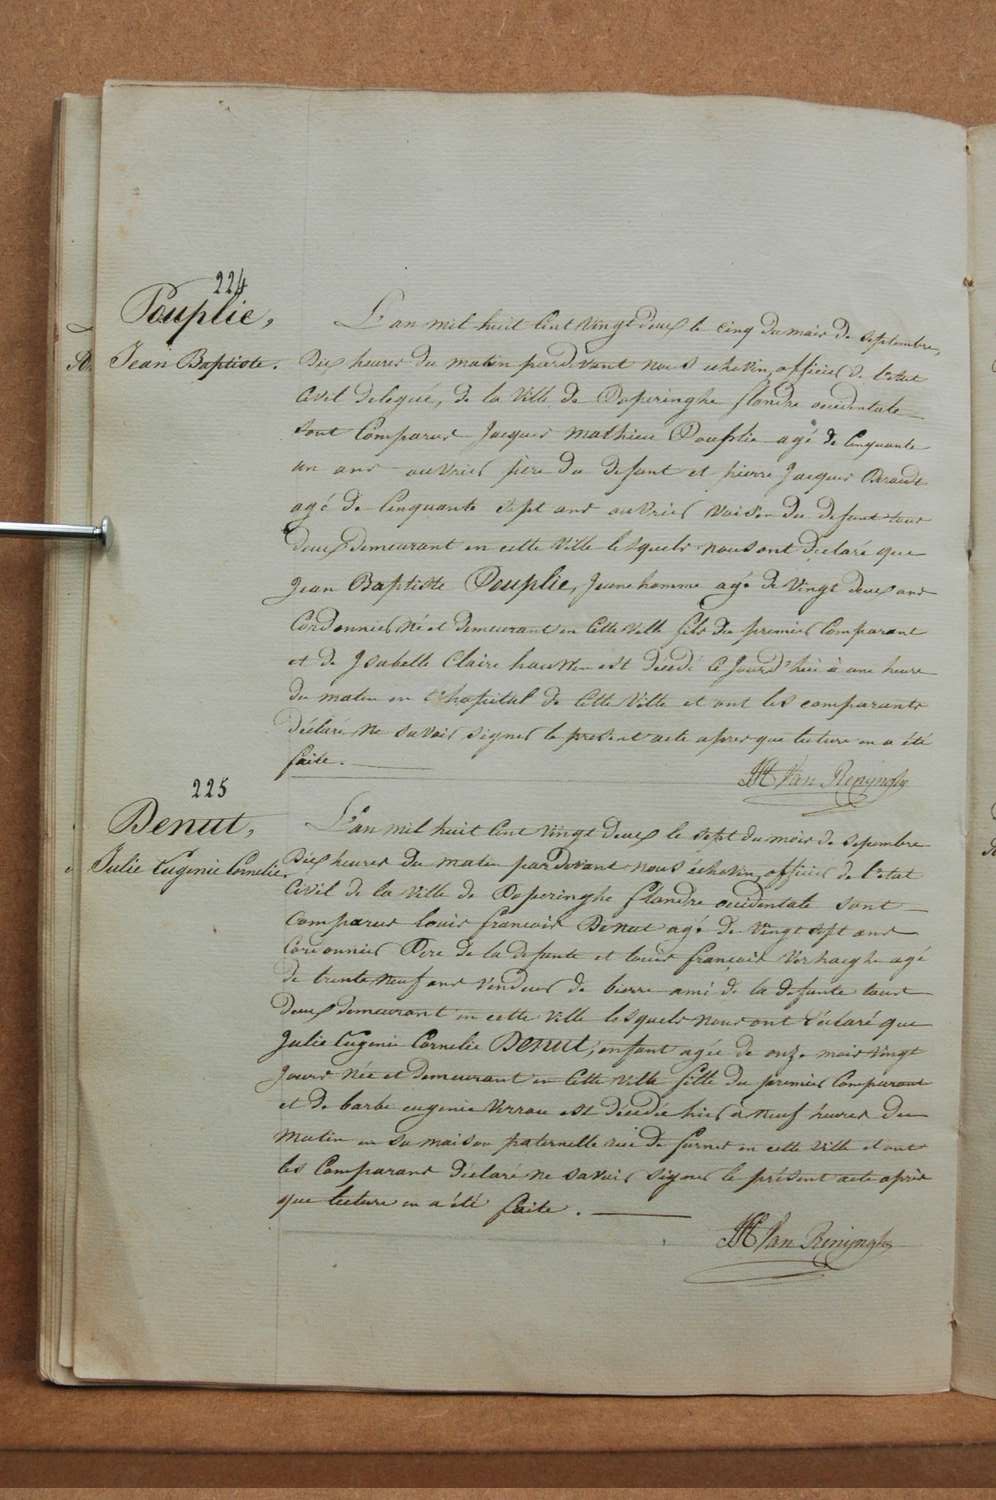 224
Pouplie,
Jean Baptiste.
L'an mil huit cent vingt deux le cinq du mois de Septembre,
dix heures du matin pardevant nous échevin, officier de l'état
civil delegué, de la ville de Poperinghe flandre occidentale
sont comparus Jacques Mathieu Pouplie agé de cinquante
un ans ouvrier père du defunt et pierre Jacques
agé de cinquante sept ans ouvrier voisin du defunt tous
deux demeurant en cette ville lesquels nous ont déclaré que
Jean Baptiste Pouplie, jeune homme agé de vingt deux ans
Cordonnier né et demeurant en cette ville fils du premier comparant
et de Isabelle Claire est décédé ce jourd'hui à une heure
du matin en l'hopital de cette ville et ont les comparants
déclaré ne savoir signer le present acte apres que lecture en a été
faite.
Van Renynghe
225
Denut,
Julie Eugenie Cornelie.
L'an mil huit cent vingt deux le sept du mois de sepembre
dix heures du matin pardevant nous échevin, officier de l'état
civil de la ville de Poperinghe flandre occidentale sont
comparus louis francois Denut agé de vingt sept ans
Cordonnier Père de la defunte et louis françois Verhaeghe agé
de trente neuf ans vendeur de bierre ami de la defunte tous
deux demeurant en cette ville lesquels nous ont déclaré que
Julie Eugenie Cornelie Denut, enfant agée de onze mois vingt
jours née et demeurant en cette ville fille du premier comparant
et de barbe eugenie est décédée hier à neuf heures du
matin en sa maison paternelle rue de furnes en cette ville et ont
les comparans déclaré ne savoir signer le présent acte après
que lecture en a été faite.
Van Renynghe